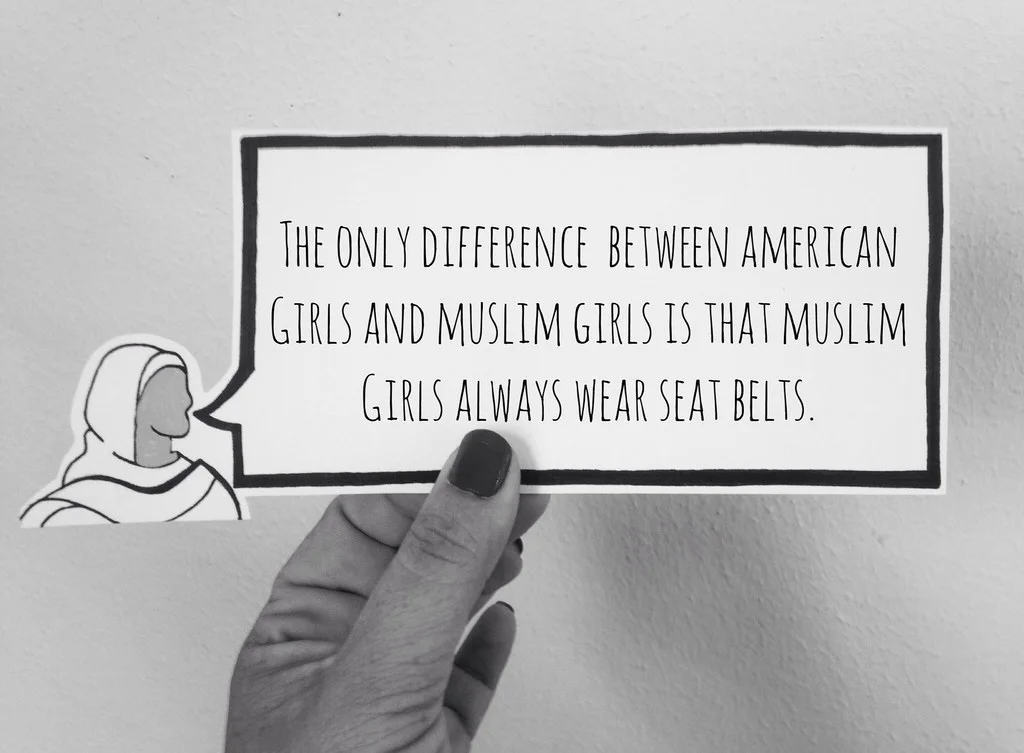 The only difference between American
Girls and Muslim girls is that Muslim
Girls always wear seat belts.